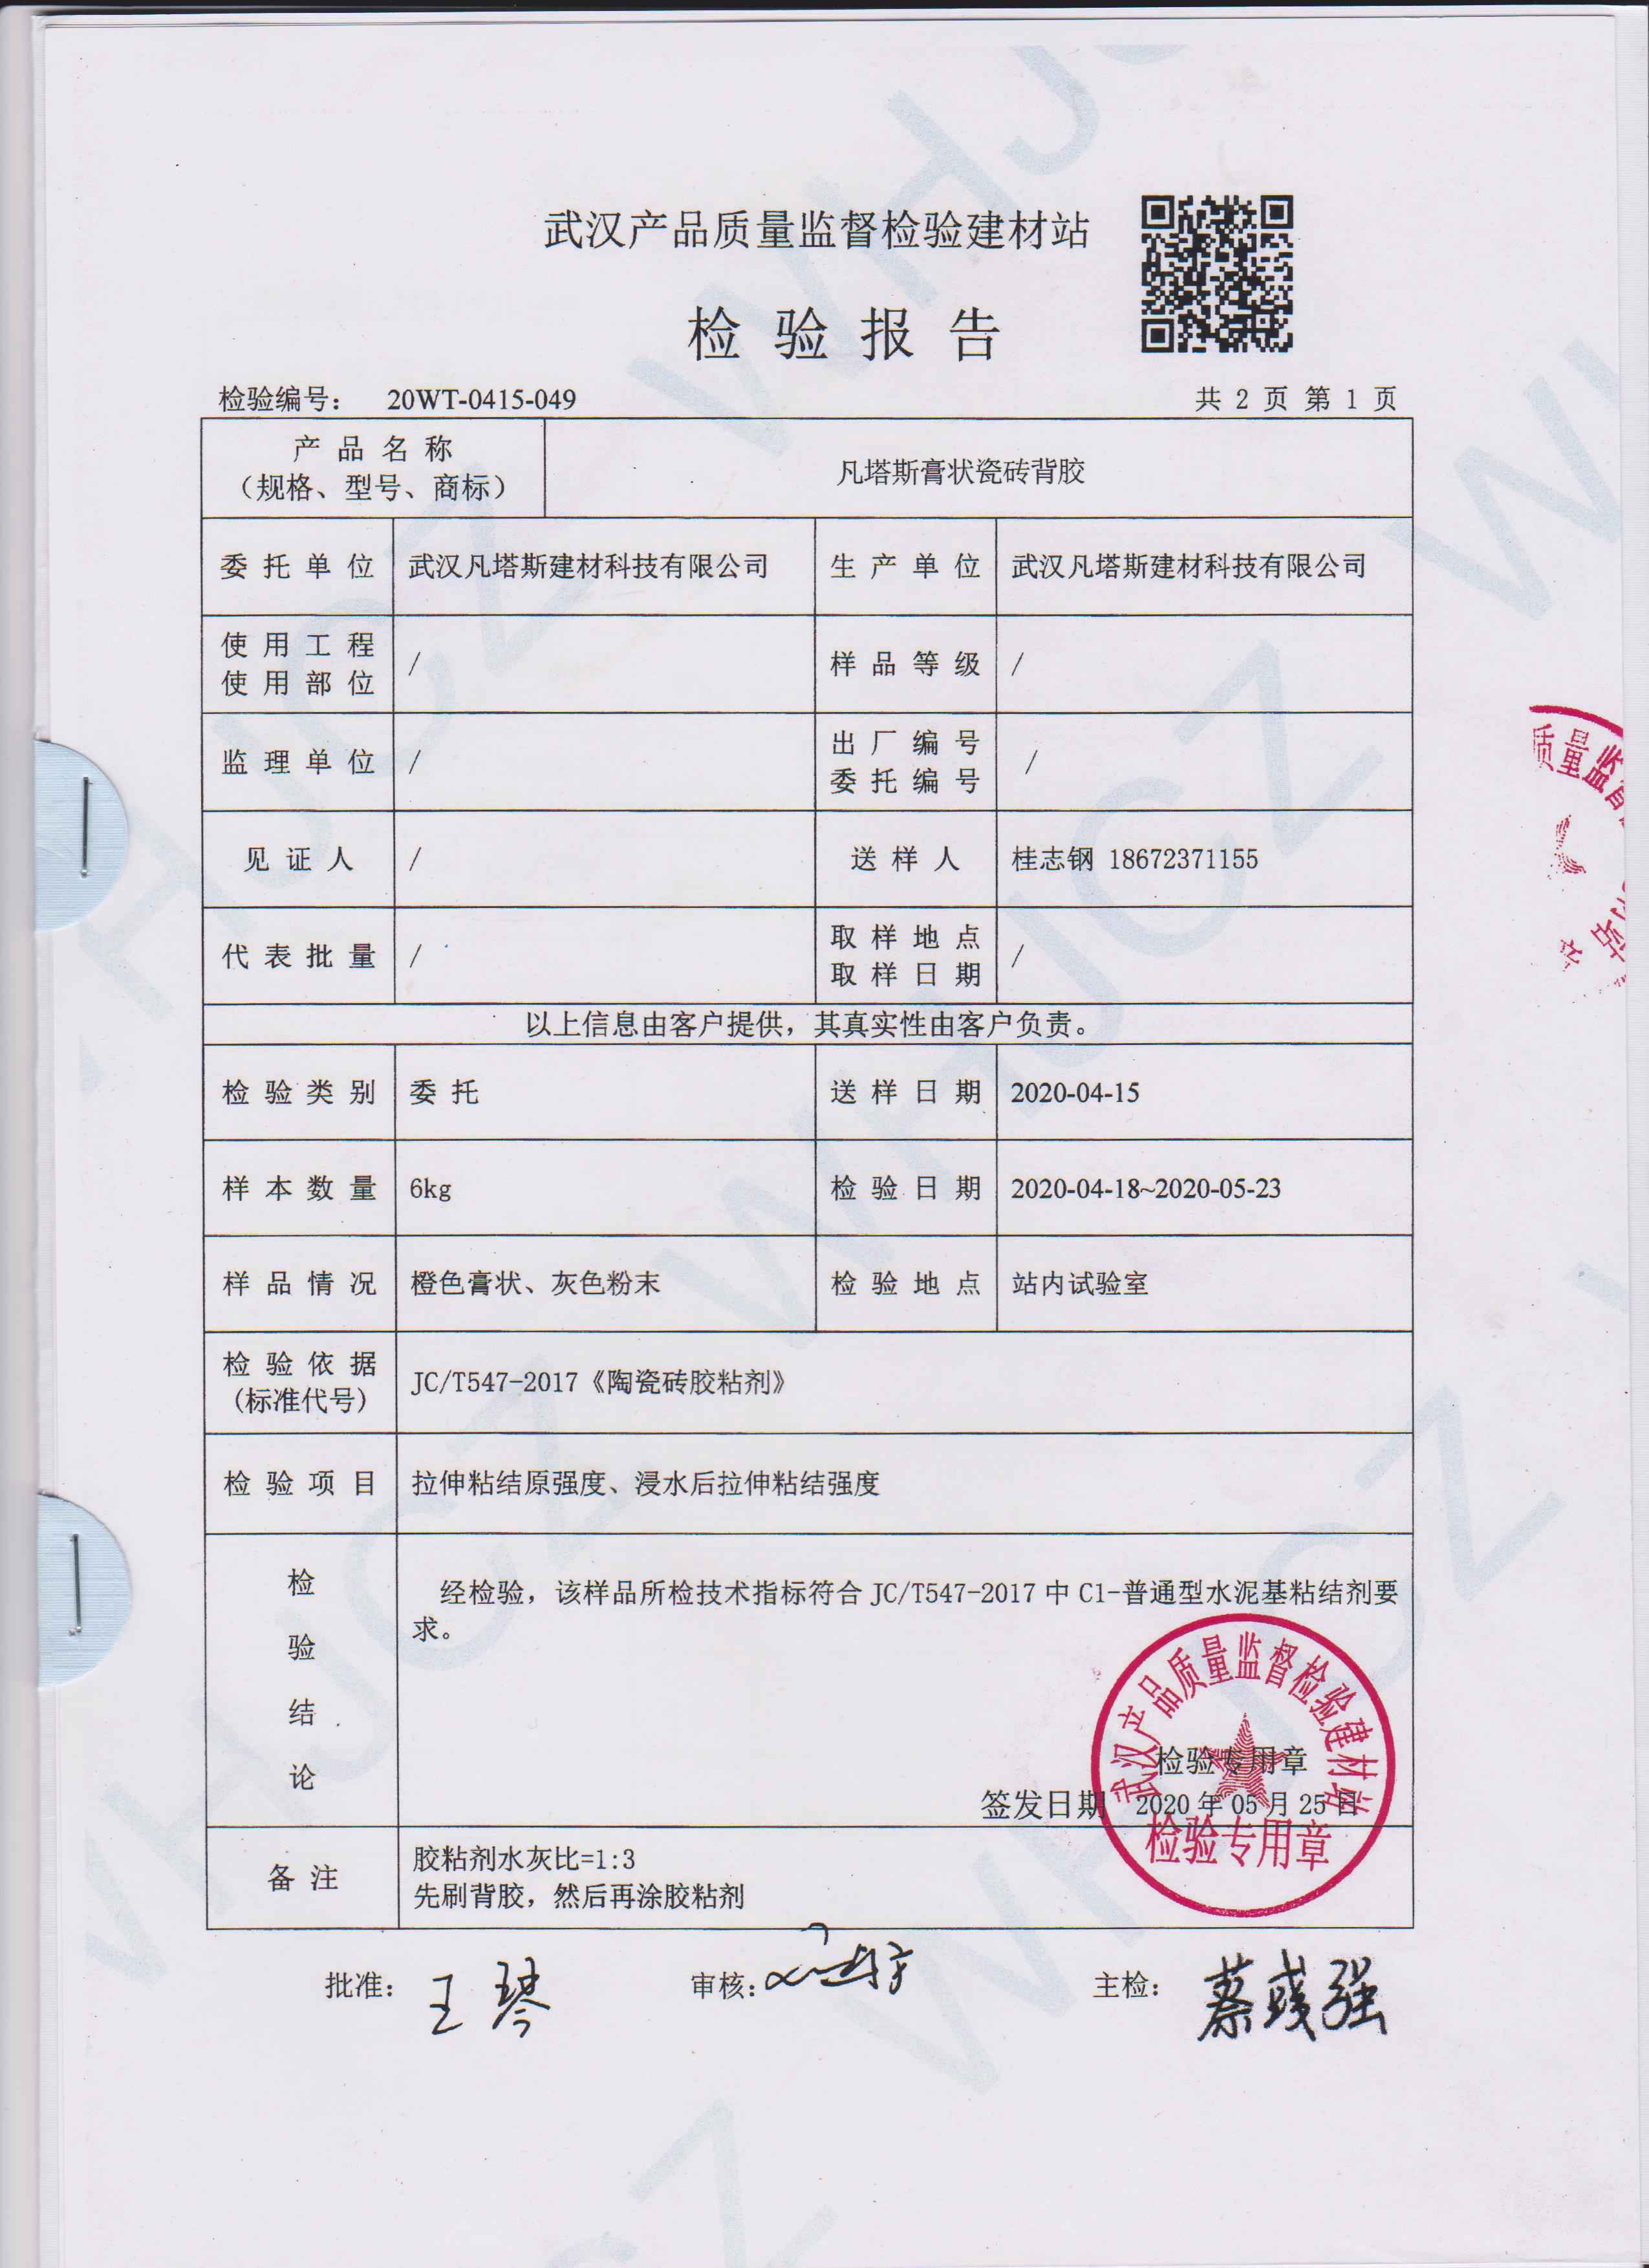 武汉产品质量监督检验建材站
检验报告
检验编号： 20WT-0415-049
共 2 页 第 1 页
产品名称
（规格、型号、商标）
凡塔斯膏状瓷砖背胶
委托单位
武汉凡塔斯建材科技有限公司
生产单位
武汉凡塔斯建材科技有限公司
使用工程
使用部位
/
样品等级
/
监理单位
/
出厂编号
委托编号
/
见证人
/
送样人
桂志钢 18672371155
代表批量
/
取样地点
取样日期
/
以上信息由客户提供，其真实性由客户负责。
检验类别
委托
送样日期
2020-04-15
样本数量
6kg
检验日期
2020-04-18~2020-05-23
样品情况
橙色膏状、灰色粉末
检验地点
站内试验室
检验依据
(标准代号)
JC/T547-2017《陶瓷砖胶粘剂》
检验项目
拉伸粘结原强度、浸水后拉伸粘结强度
检
验
结
论
经检验，该样品所检技术指标符合 JC/T547-2017 中 C1-普通型水泥基粘结剂要
求。
武汉产品质量监督检验建材站
检验专用章
签发日期 2020 年 05 月 25 日
检验专用章
备注
胶粘剂水灰比=1:3
先刷背胶，然后再涂胶粘剂
批准： 王琴
审核：
主检：
质量监督
WHJCZ